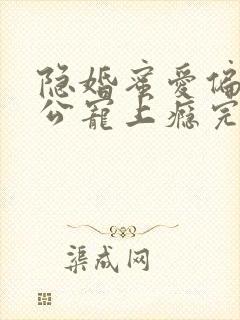 隐婚蜜爱偏
公宠上瘾完
渠成网